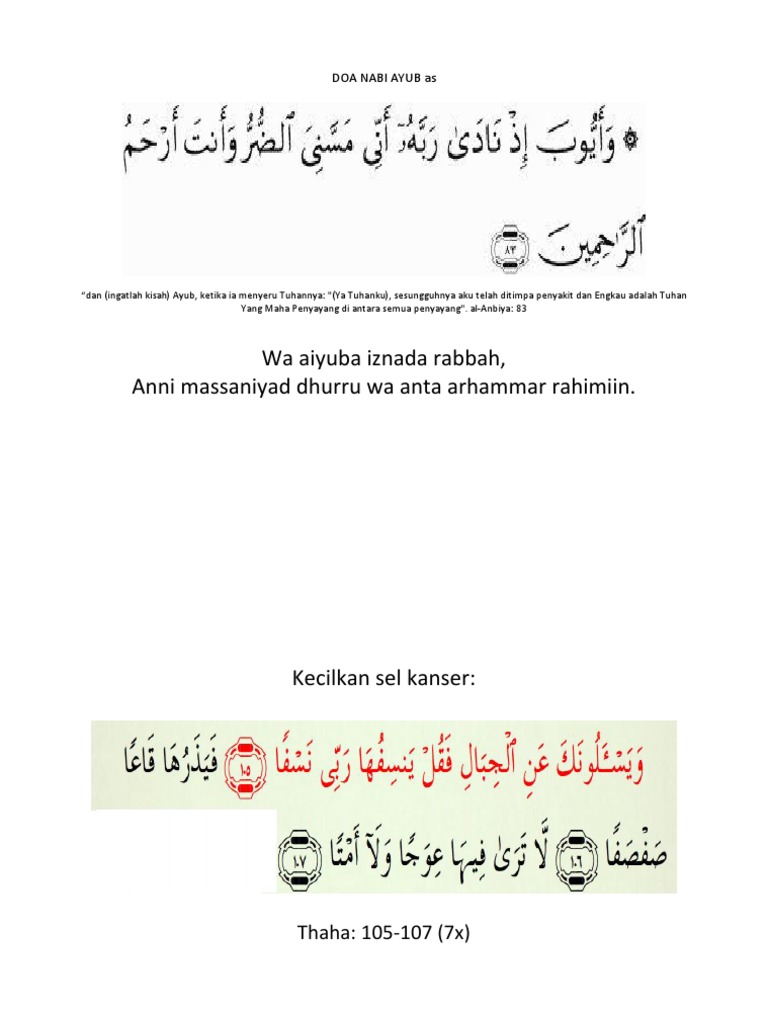 DOA NABI AYUB as
۞ وَأَيُّوبَ إِذْ نَادَىٰ رَبَّهُۥٓ أَنِّى مَسَّنِىَ ٱلضُّرُّ وَأَنتَ أَرْحَمُ
ٱلرَّٰحِمِينَ ٨٣
“dan (ingatlah kisah) Ayub, ketika ia menyeru Tuhannya: "(Ya Tuhanku), sesungguhnya aku telah ditimpa penyakit dan Engkau adalah Tuhan
Yang Maha Penyayang di antara semua penyayang". al-Anbiya: 83
Wa aiyuba iznada rabbah,
Anni massaniyad dhurru wa anta arhammar rahimiin.
Kecilkan sel kanser:
وَيَسْـَٔلُونَكَ عَنِ ٱلْجِبَالِ فَقُلْ يَنسِفُهَا رَبِّى نَسْفًا ١٠٥ فَيَذَرُهَا قَاعًا
صَفْصَفًا ١٠٦ لَّا تَرَىٰ فِيهَا عِوَجًا وَلَآ أَمْتًا ١٠٧
Thaha: 105-107 (7x)